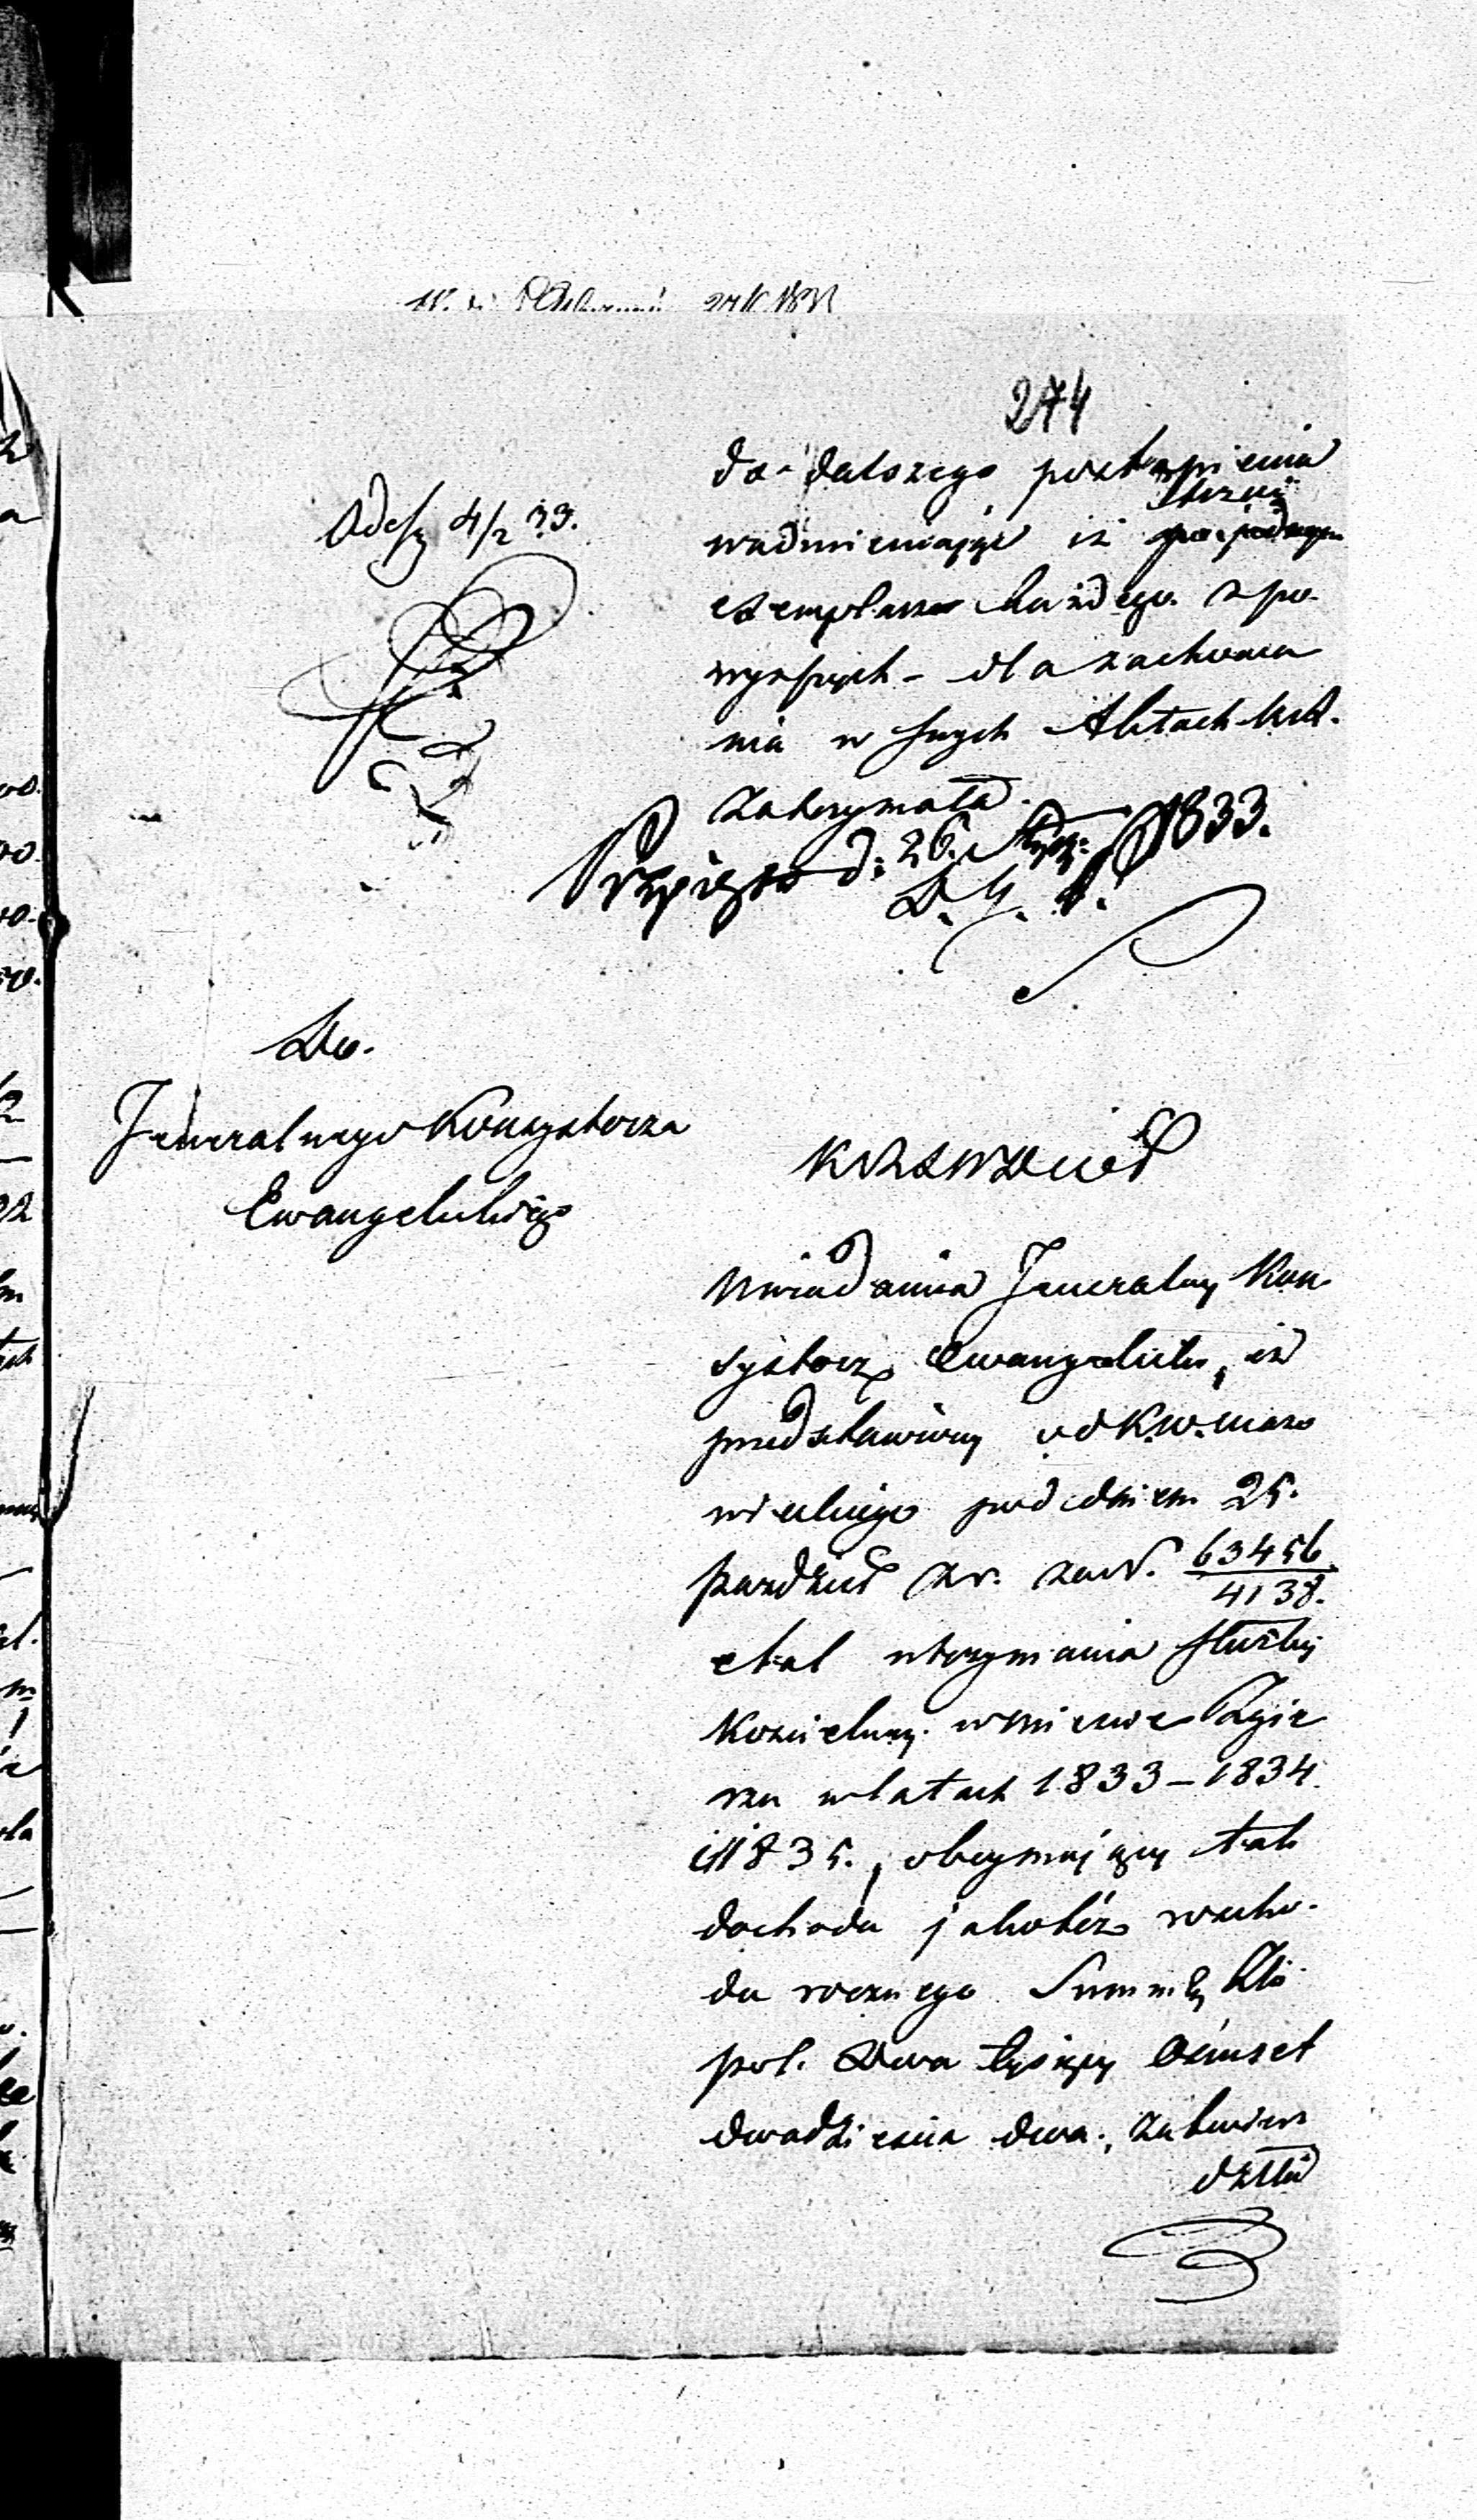 274
do dalszego postąpienia
Odesz 4/2 33.
nadmieniając iż po jednym
exemplarzu każdego z po-
wyższych - dla zachowa
nia w swych Aktach
zatrzymała.
Przyjęto d: 26. Stycz: 1833.
Do.
Jeneralnego Konsystorza
Ewangelickiego
KRSWDiOP
Uwiadamia Jeneralny Kon
systorz Ewangelicki, iż
przedstawiony od K.W. Mazo
wieckiego pod dniem 25.
Paździer zr. za N. 63456/4138.
etat utrzymania służby
Kościelney w mieście Zgie
rzu w latach 1833 – 1834
i 1835., obeymujący tak
dochodu jakoteż rozcho-
du rocznego Summę Zło
pol. Dwa tysiące ośmset
dwadzieścia dwa., zatwier
dziła